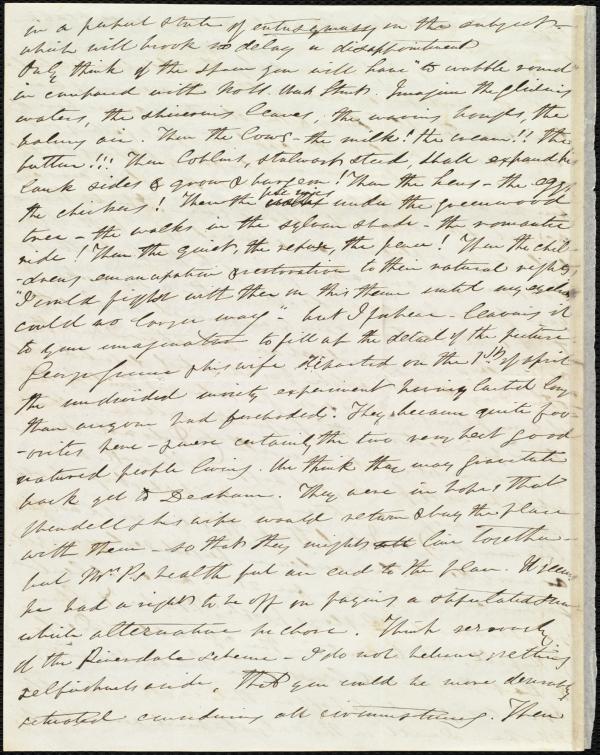 in a perfect state of entusymussy on the subject
which will brook no delay or disappointment
Only think of the space you will have "to wabble round"
in compared with Imagine the gliding
waters, the shivering leaves, the waving boughs, the
balmy air. Then the Cows - the milk! the cream!! the
butter!!! Then Coblins, stalwart steed, shall expand his
lank sides & grow & burgeon! Then the hens - the eggs
the chickens! Then the pic nics under the greenwood
tree - the walks in the sylvan shade - the romantic
ride! Then the quiet, the repose, the peace! Then the chil-
-drens emancipation & restoration to their natural rights,
"I could fight with thee on this theme until my eyelids
could no longer wag" but I forbear - leaving it
to your imagination to fill up the detail of the picture
George & his wife departed on the 1st of April
the undivided moiety experiment having lasted longer
than anyone had foreboded. They became quite fav-
-orites here - & were certainly the two very best good
natured people living. We think they may gravitate
back yet to Dedham. They were in hopes that
Wendell & his wife would return & buy the place
with them - so that they might live together -
but Mrs. P's health put an end to the plan. It seems
he had a right to be off on paying a stipulated sum
which alternative he chose. Think seriously
of the Riverdale scheme - I do not believe, setting
selfishness aside, that you could be more desirably
situated considering all circumstances. Then